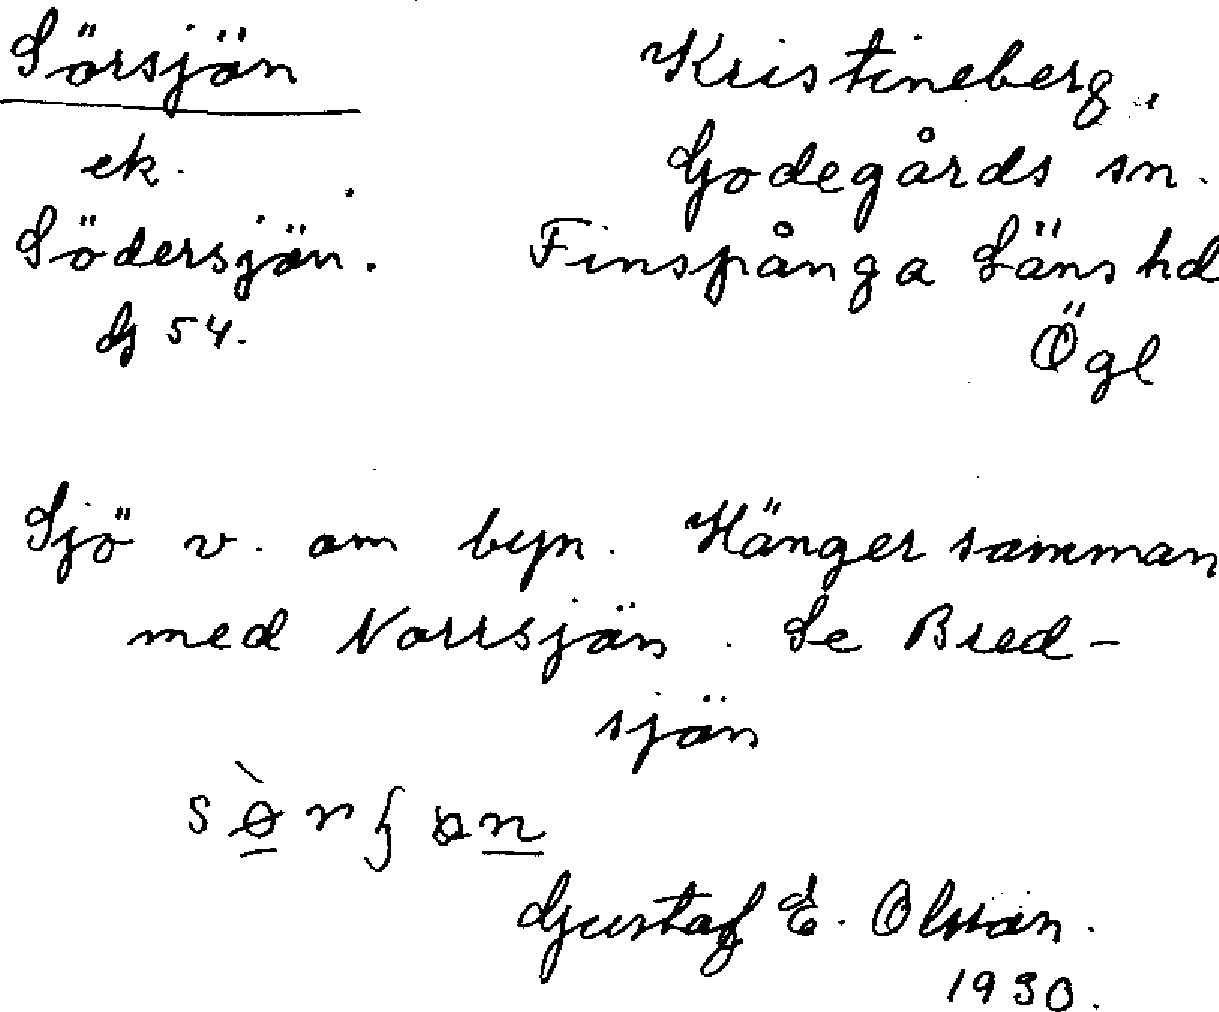 Sörsjön
ek.
Södersjön.
G 54.
Kristineberg.
Godegårds sn.
Finspånga Läns hd
Ögl
Sjö v. om byn. Hänger samman
med Norrsjön. Se Bred-
sjön
Gustaf E. Olsson.
1930.